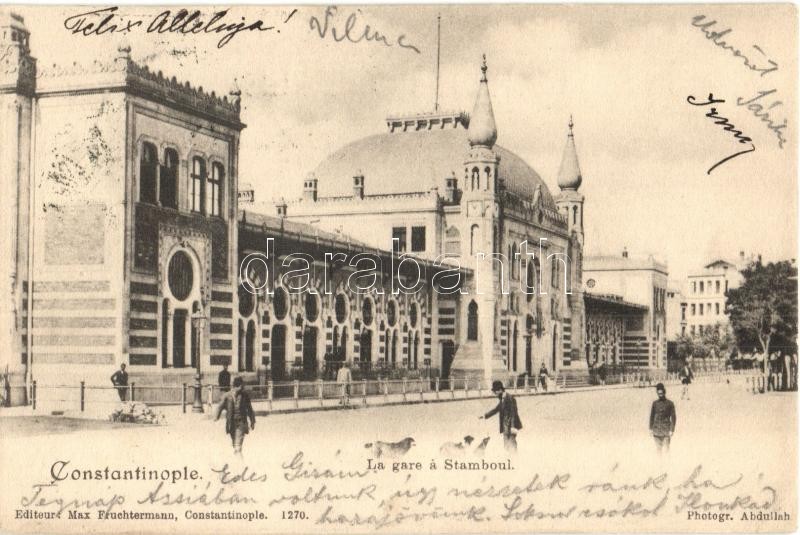 Felix Alleluja!
Vilma
Sári
Irma
darabanth
Constantinople.
La gare à Stamboul.
Edes Gizám
Tegnap Assiában voltunk, úgy nézzetek ránk, ha
harajövünk. Sokszor csókol Ilonkád
Editeur: Max Fruchtermann, Constantinople. 1270.
Photogr. Abdullah